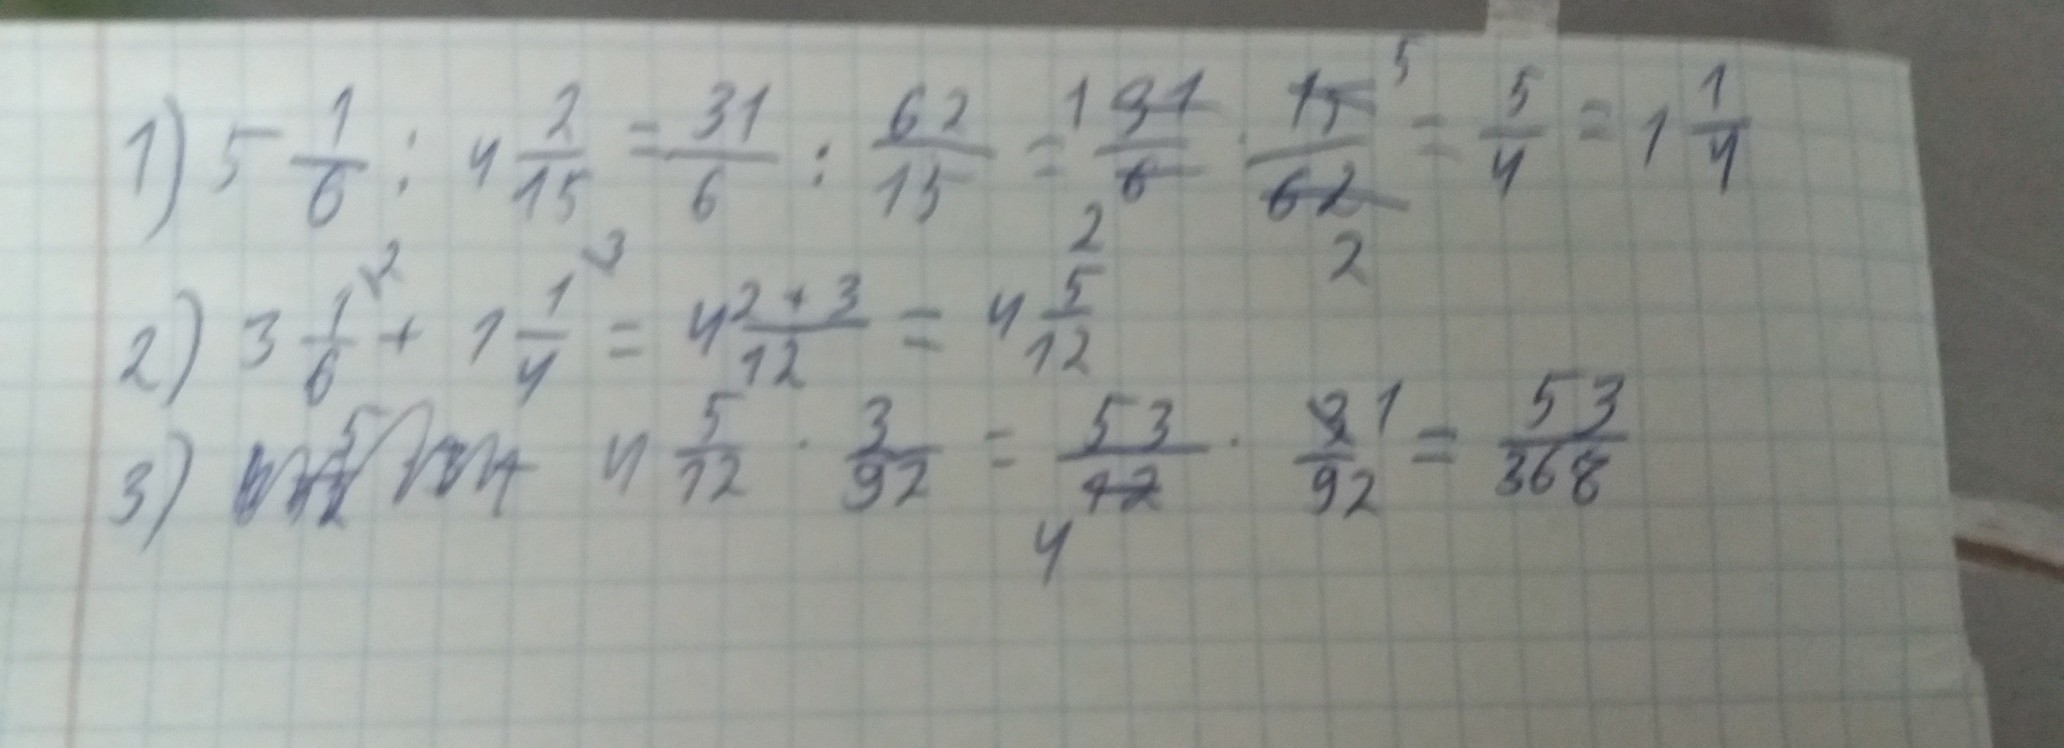 1) 5 1/6 : 4 2/15 = 31/6 : 62/15 = 1 31/6 2 · 15/62 5 2 = 5/4 = 1 1/4
2) 3 1/6 2 + 1 1/4 3 = 4 2+3/12 = 4 5/12
3) 4 5/12 · 3/92 = 53/12 4 · 3/92 1 = 53/368